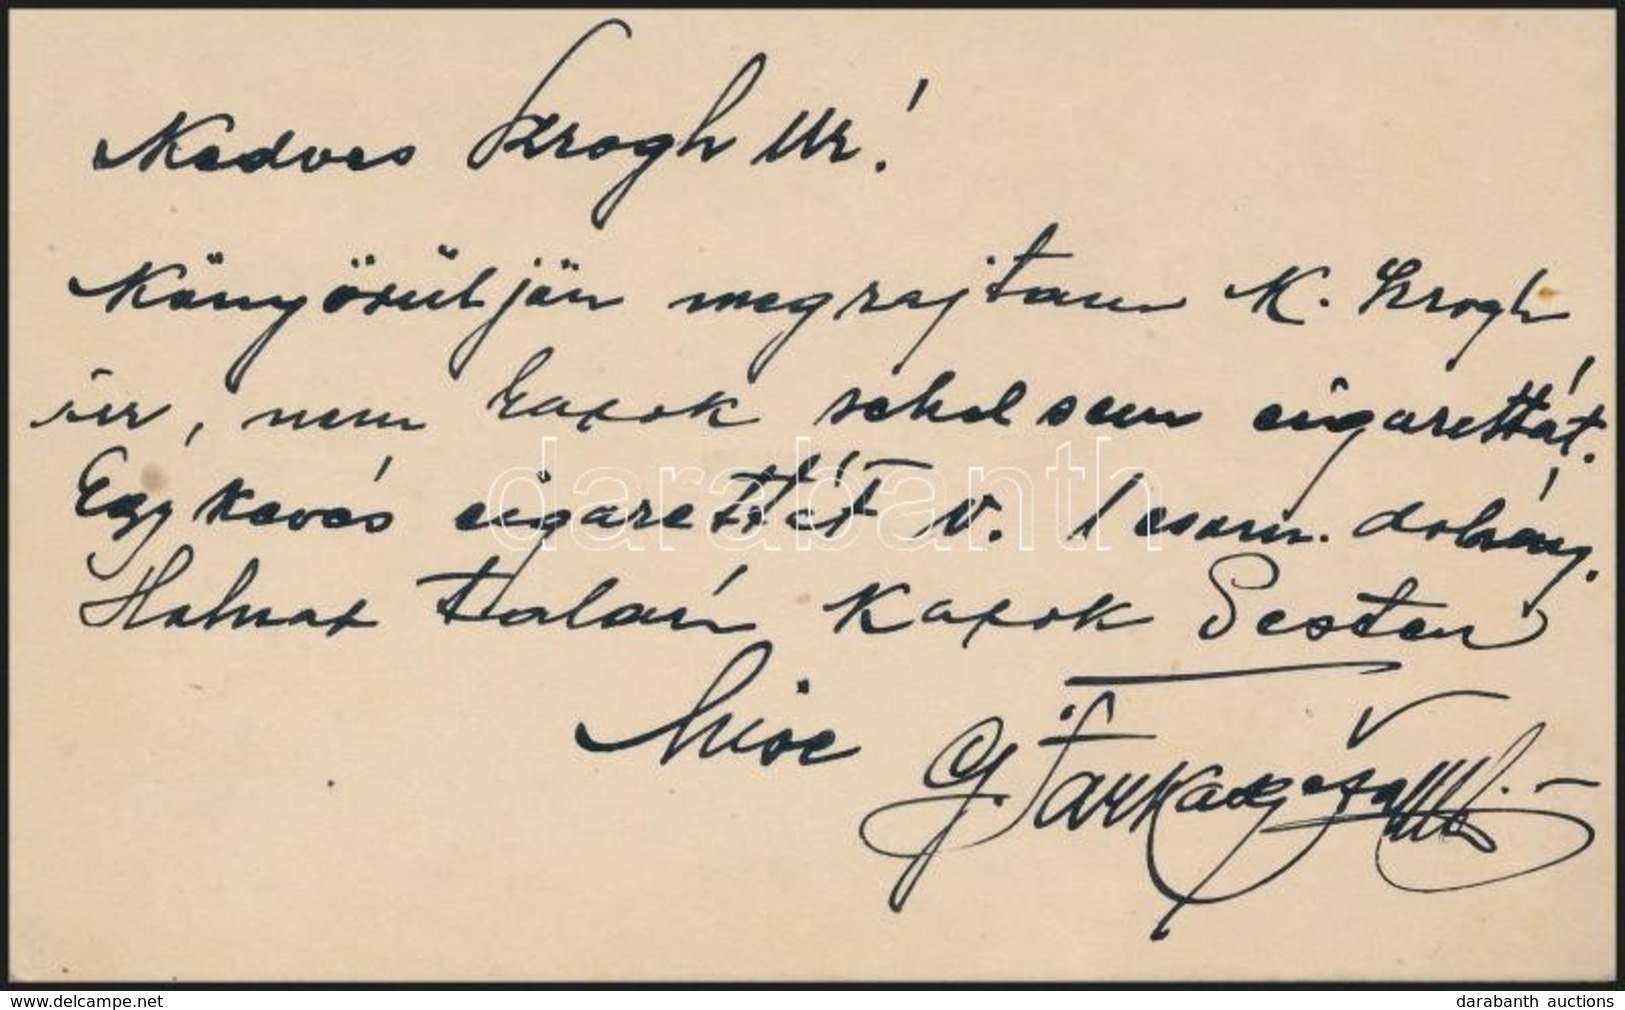 Kedves Krogh Ur!
Könyörüljön meg rajtam K. Krogh
úr, nem kapok sehol sem cigarettát.
Egy kevés cigarettát v. 1 csom. dohány.
Holnap talán kapok Pesten
G. Farkas
darabanth
www.delcampe.net
darabanth auctions